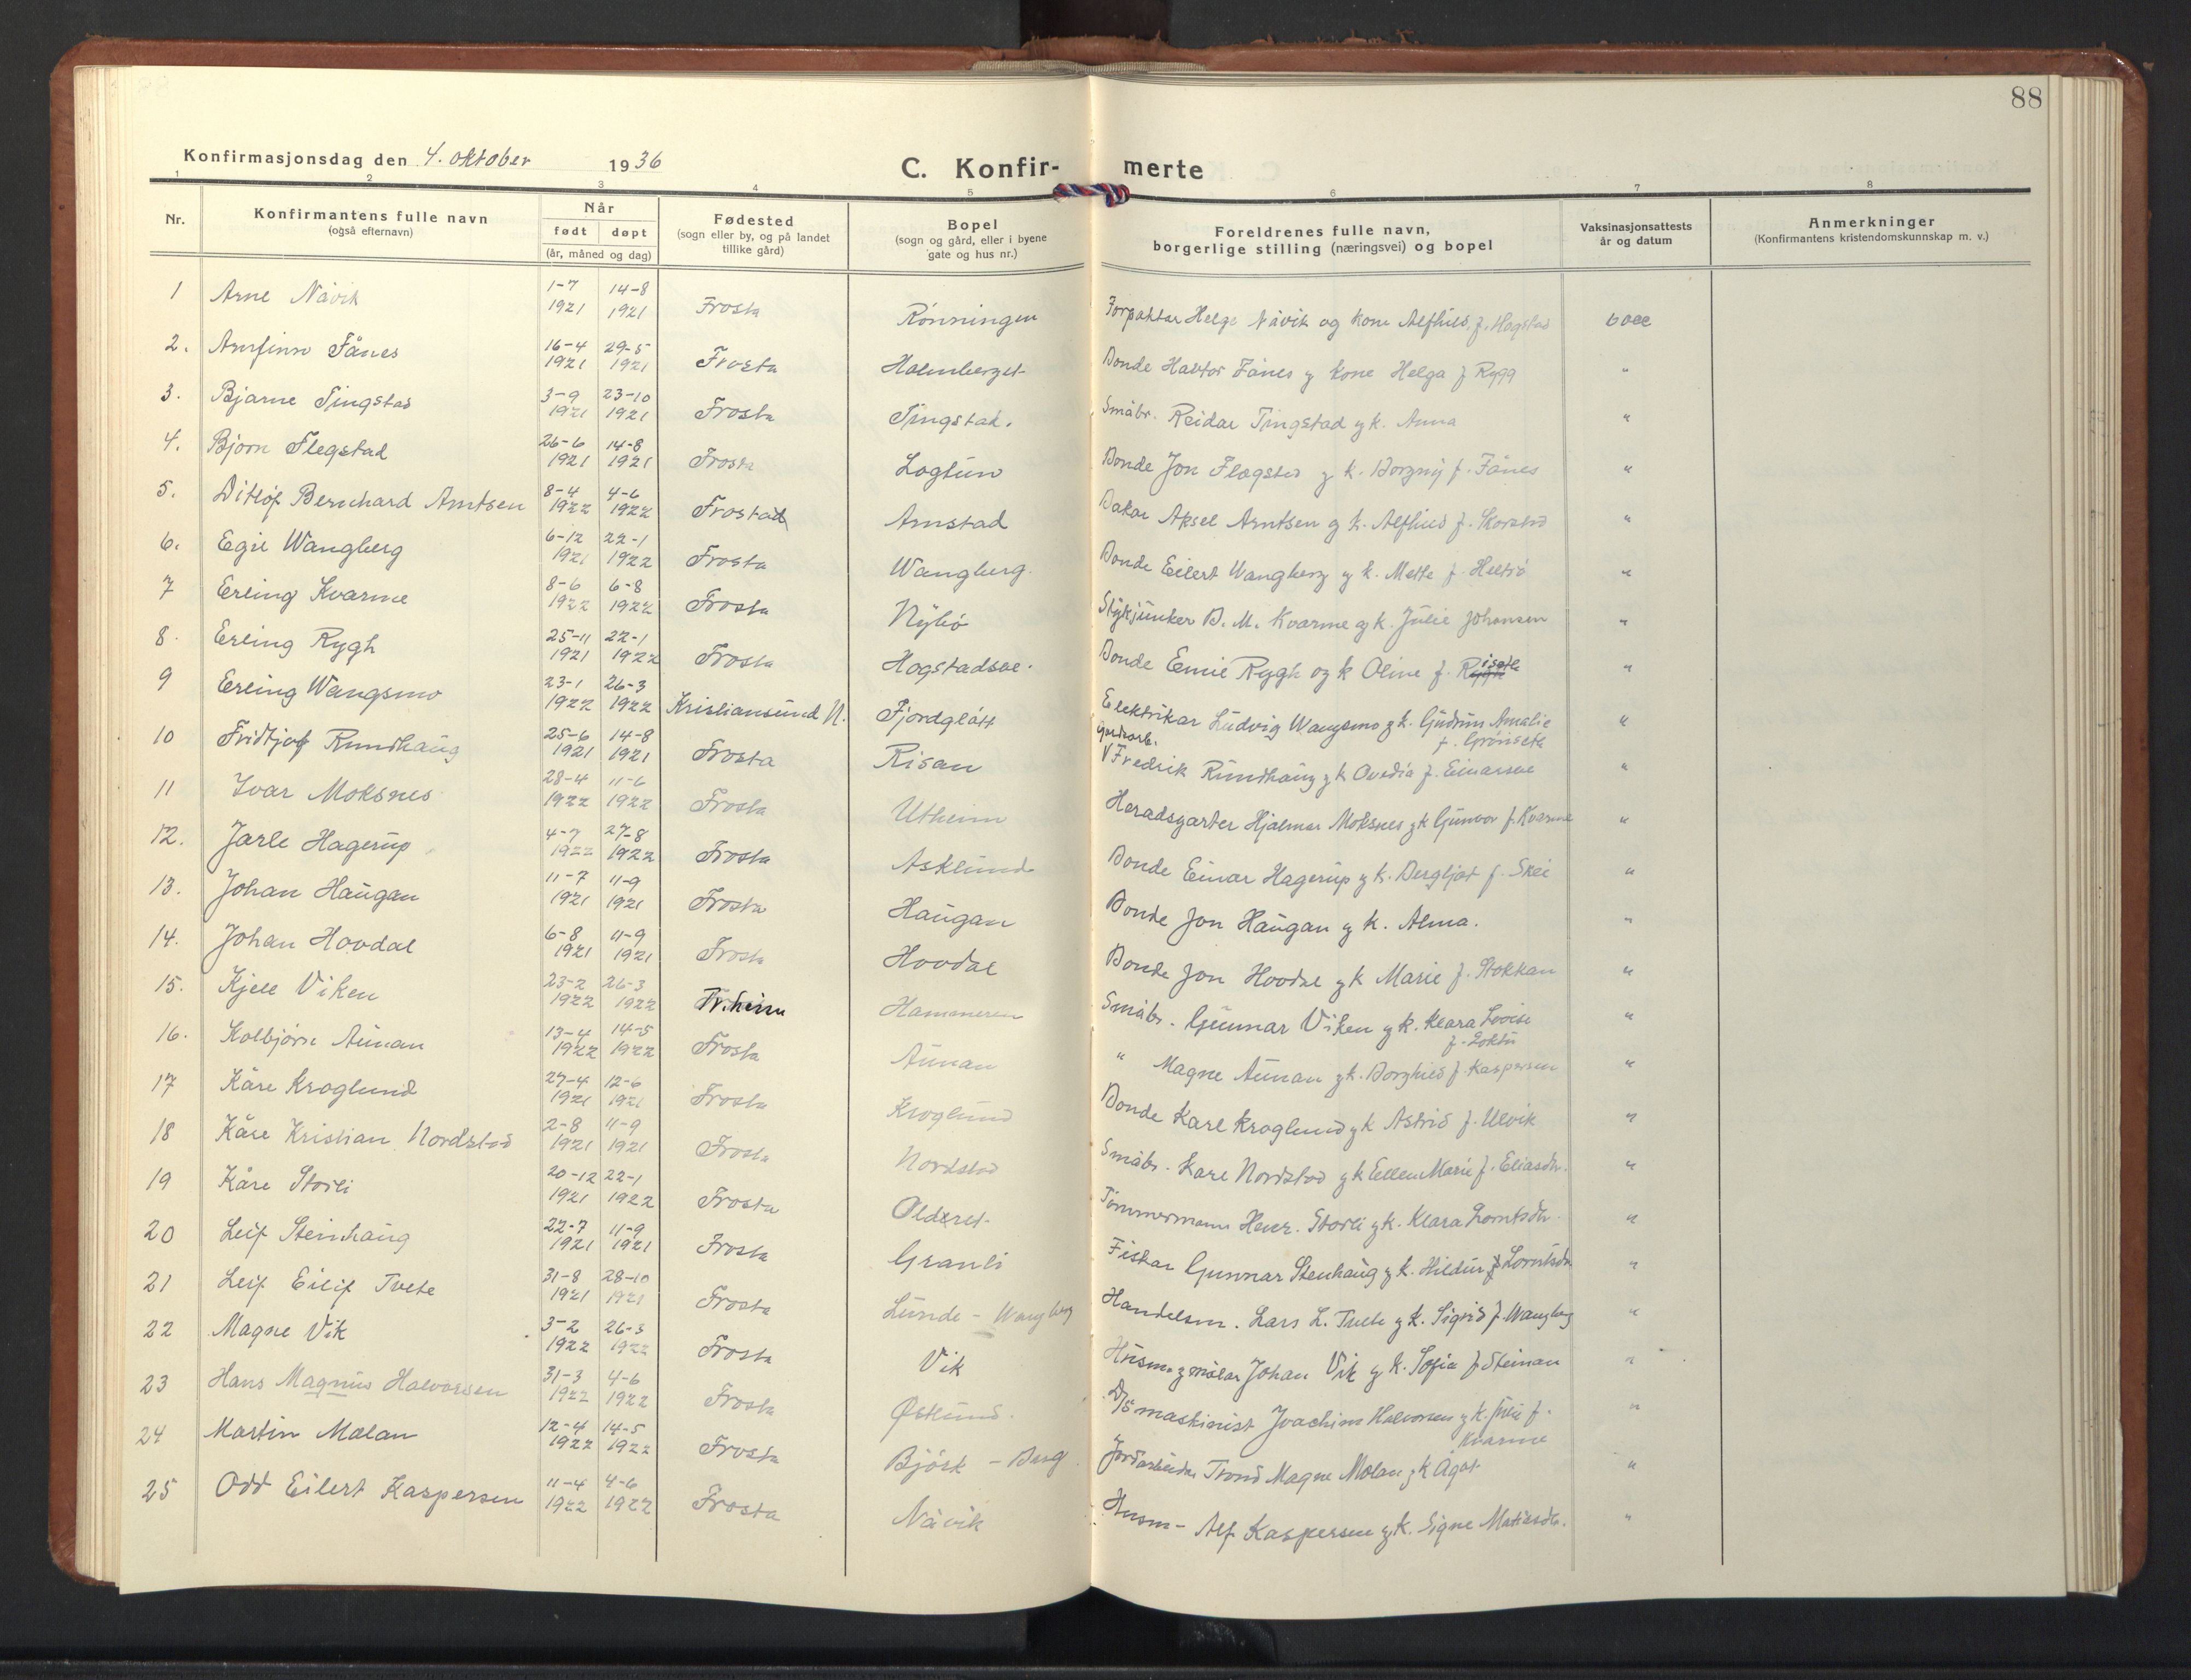 88
Konfirmasjonsdag den 4. oktober 1936
C. Konfir- merte
1 2 3 4 5 6 7 8
Nr. Konfirmantens fulle navn (også efternavn) Når født døpt (år, måned og dag) Fødested (sogn eller by, og på landet tillike gård) Bopel (sogn og gård, eller i byene gate og hus nr.) Foreldrenes fulle navn, borgerlige stilling (næringsvei) og bopel Vaksinasjonsattests år og datum Anmerkninger (Konfirmantens kristendomskunnskap m. v.)
1 Arne Nåvik 1-7 1921 14-8 1921 Frosta Rønningen Forpaktar Helge Nåvik og kone Alfhild f. Hogstad
2. Arnfinn Fånes 16-4 1921 29-5 1921 Frosta Holmberget Bonde Havtor Fånes g kone Helga f Rygg "
3. Bjarne Tingstad 3-9 1921 23-10 1921 Frosta Tingstad. Småbr. Reidar Tingstad g k. Anna "
4. Bjørn Flegstad 26-6 1921 14-8 1921 Frosta Logtun Bonde Jon Flægstad g k. Borgny f. Fånes "
5. Ditlof Bernhard Arntsen 8-4 1922 4-6 1922 Frostad Arnstad Bakar Aksel Arntsen g k. Alfhild f. "
6. Egil Wangberg 6-12 1921 22-1 1922 Frosta Wangberg. Bonde Eilert Wangberg g k. Mette f. "
7 Erling Kvarme 8-6 1922 6-8 1922 Frosta Nybø Stykjunker B. M. Kvarme og k. Julie Johansen "
8. Erling Rygh 25-11 1921 22-1 1922 Frosta Bonde Emil Rygh og k Oline f. "
9 Erling Wangsmo 23-1 1922 26-3 1922 Kristiansund N. Fjordgløtt Elektrikar Ludvig Wangsmo g k. Gudrun Amalie f. Grønseth "
10 Fridtjof Rundhaug 25-6 1921 14-8 1921 Frosta Risan Fredrik Rundhaug g k Ovedia f. Einarsen "
11 Ivar Moksnes 28-4 1922 11-6 1922 Frosta Utheim Heradsgartner Hjalmar Moksnes g k Gunvor f. Kvarme "
12. Jarle Hagerup 4-7 1922 27-8 1922 Frosta Asklund Bonde Einar Hagerup g k. Bergljot f. Skei "
13. Johan Haugan 11-7 1921 11-9 1921 Frosta Haugan Bonde Jon Haugan g k. Alma. "
14. Johan Hovdal 6-8 1921 11-9 1921 Frosta Hovdal Bonde Jon Hovdal g k Marie f. Stokkan "
15. Kjell Viken 23-2 1922 26-3 1922 Tr.heim Hammeren Småbr. Gunnar Viken g k. Klara Lovise f. Loktu "
16. Kolbjørn Aunan 13-4 1922 14-5 1922 Frosta Aunan " Magne Aunan g k. Borghild f. Kaspersen "
17 Kåre Kroglund 27-4 1921 12-6 1921 Frosta Kroglund Bonde Karl Kroglund g k Astrid f. Ulvik "
18 Kåre Kristian Nordstad 2-8 1921 11-9 1921 Frosta Nordstad Småbr. Kare Nordstad g k Ellen Marie f. Eliasdtr. "
19 Kåre Storli 20-12 1921 22-1 1922 Frosta Olderet Tømmermann Henr. Storli g k. Klara Lorntsdtr. "
20 Leif Steinhaug 22-7 1921 11-9 1921 Frosta Granli Fiskar Gunnar Stenhaug g k. Hildur f Lorntsen "
21 Leif Eilif Tvete 31-8 1921 28-10 1921 Frosta Lunde - Wangberg Handelsm. Lars L. Tvete g k. Sigrid f. Wangberg "
22 Magne Vik 3-2 1922 26-3 1922 Frosta Vik Husm. g målar Johan Vik g k. Sofia f Steinan "
23 Hans Magnus Halvorsen 31-3 1922 4-6 1922 Frosta Østlund. D/S maskinist Joachim Halvorsen g k. Julie f. Kvarme "
24 Martin Molan 12-4 1922 14-5 1922 Frosta Bjørk - Berg. Jordarbeider Trond Magne Molan g k Agot "
25 Odd Eilert Kaspersen 11-4 1922 4-6 1922 Frosta Nåvik Husm- Alf Kaspersen g k. Signe Matiasdtr. "